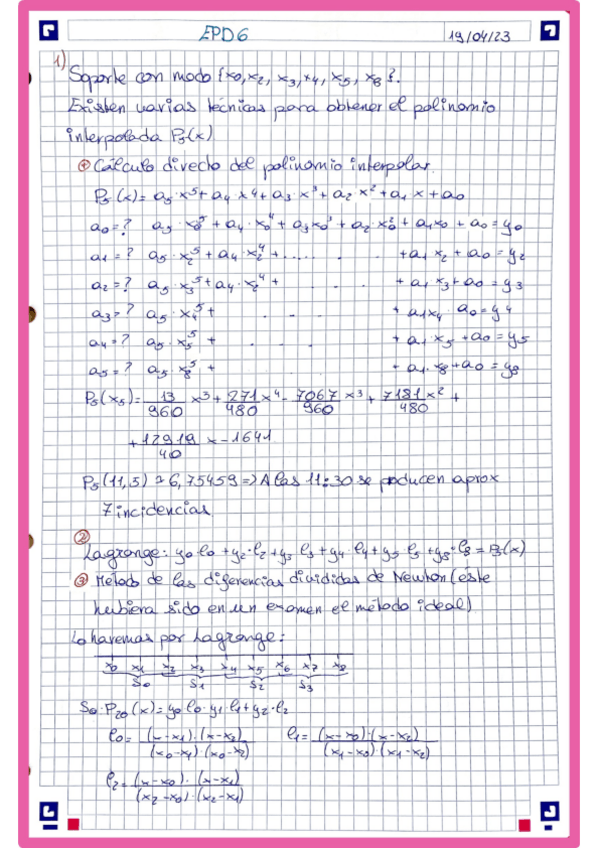 EPD6 19/04/23
1)
Soporte con modo {x0, x2, x3, x4, x5, x8}.
Existen varias técnicas para obtener el polinomio
interpolada P5(x)
① Cálculo directo del polinomio interpolar.
P5(x) = a5·x^5 + a4·x^4 + a3·x^3 + a2·x^2 + a1·x + a0
a0=? a5·x0^5 + a4·x0^4 + a3x0^3 + a2·x0^2 + a1x0 + a0 = y0
a1=? a5·x2^5 + a4·x2^4 + ...... +a1 x2 + a0 = y2
a2=? a5·x3^5 + a4·x2^4 + + a1 x3 + a0 = y3
a3=? a5·x4^5 + - - - + a1x4 · a0 = y4
a4=? a5·x5^5 + - - + a1·x5 + a0 = y5
a5=? a5·x8^5 + + a1·x8 + a0 = y8
P5(x5) = 13/960 x^3 + 271/480 x^4 - 7067/960 x^3 + 7181/480 x^2 +
+ 12919/40 x - 1641
P5(11,5) ≈ 6,75459 => A las 11:30 se producen aprox
7 incidencias.
②
Lagrange: y0·l0 + y2·l2 + y3·l3 + y4·l4 + y5·l5 + y8·l8 = P5(x)
③ Método de las diferencias divididas de Newton (éste
hubiera sido en un examen el método ideal)
Lo haremos por Lagrange:
x0 x1 x2 x3 x4 x5 x6 x7 x8
S0 S1 S2 S3
S0·P20(x) = y0·l0·y1·l1 + y2·l2
l0 = (x-x1)·(x-x2)/(x0-x1)·(x0-x2) l1 = (x-x0)·(x-x2)/(x1-x0)·(x1-x2)
l2 = (x-x0)·(x-x1)/(x2-x0)·(x2-x1)